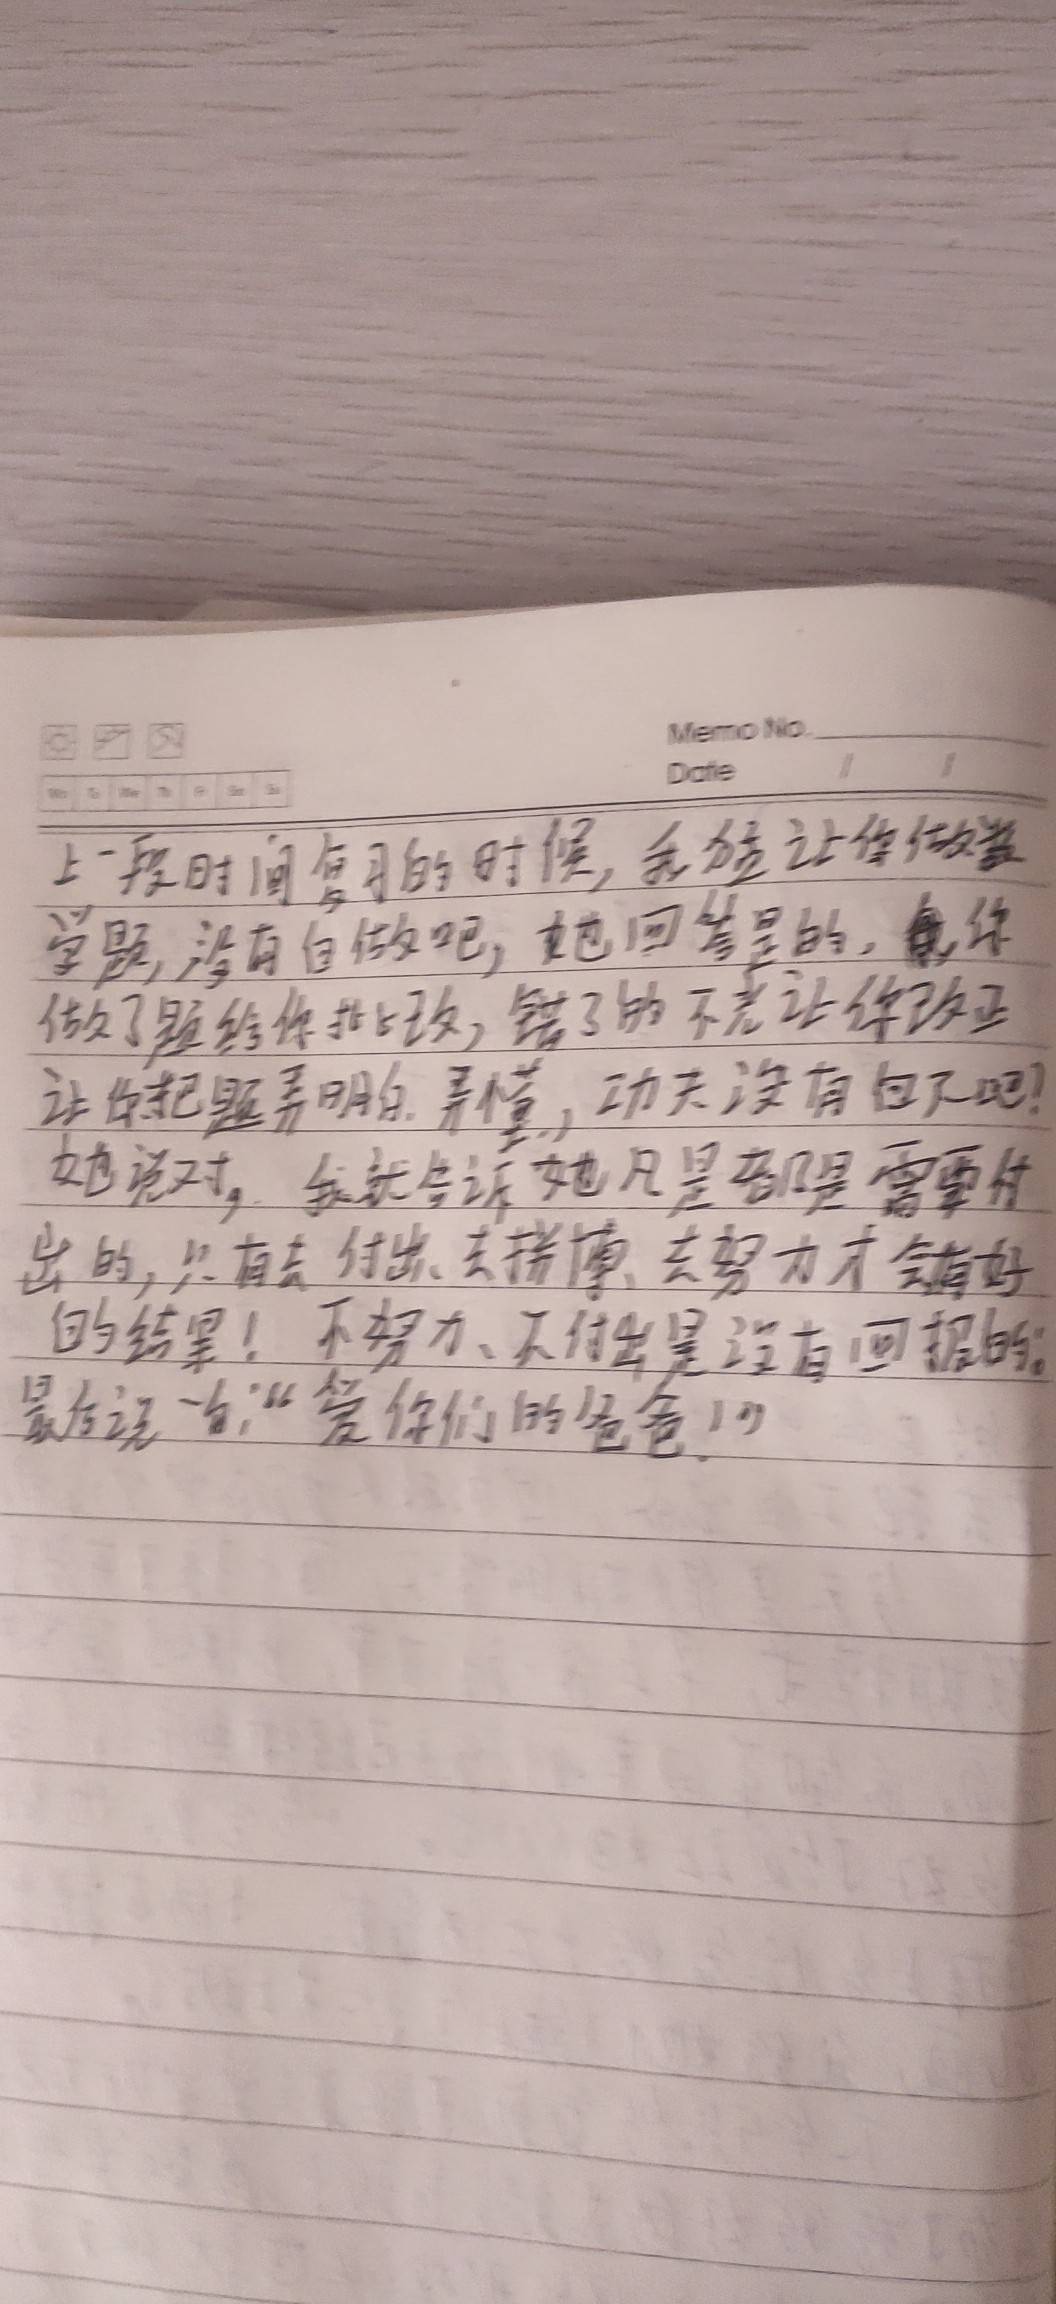 Memo No.
Date / /
Mo Tu We Th Fr Sa Su
上一段时间复习的时候,我 让你做数
学题,没有白做吧,她回答是的, 你
做了题给你批改,错了的不光让你改正
让你把题弄明白.弄懂,功夫没有白下吧!
她说对, 我就告诉她凡是都是需要付
出的,只有去付出、去拼博、去努力才会有好
的结果! 不努力、不付出是没有回报的。
最后说一句:“爱你们的爸爸!”